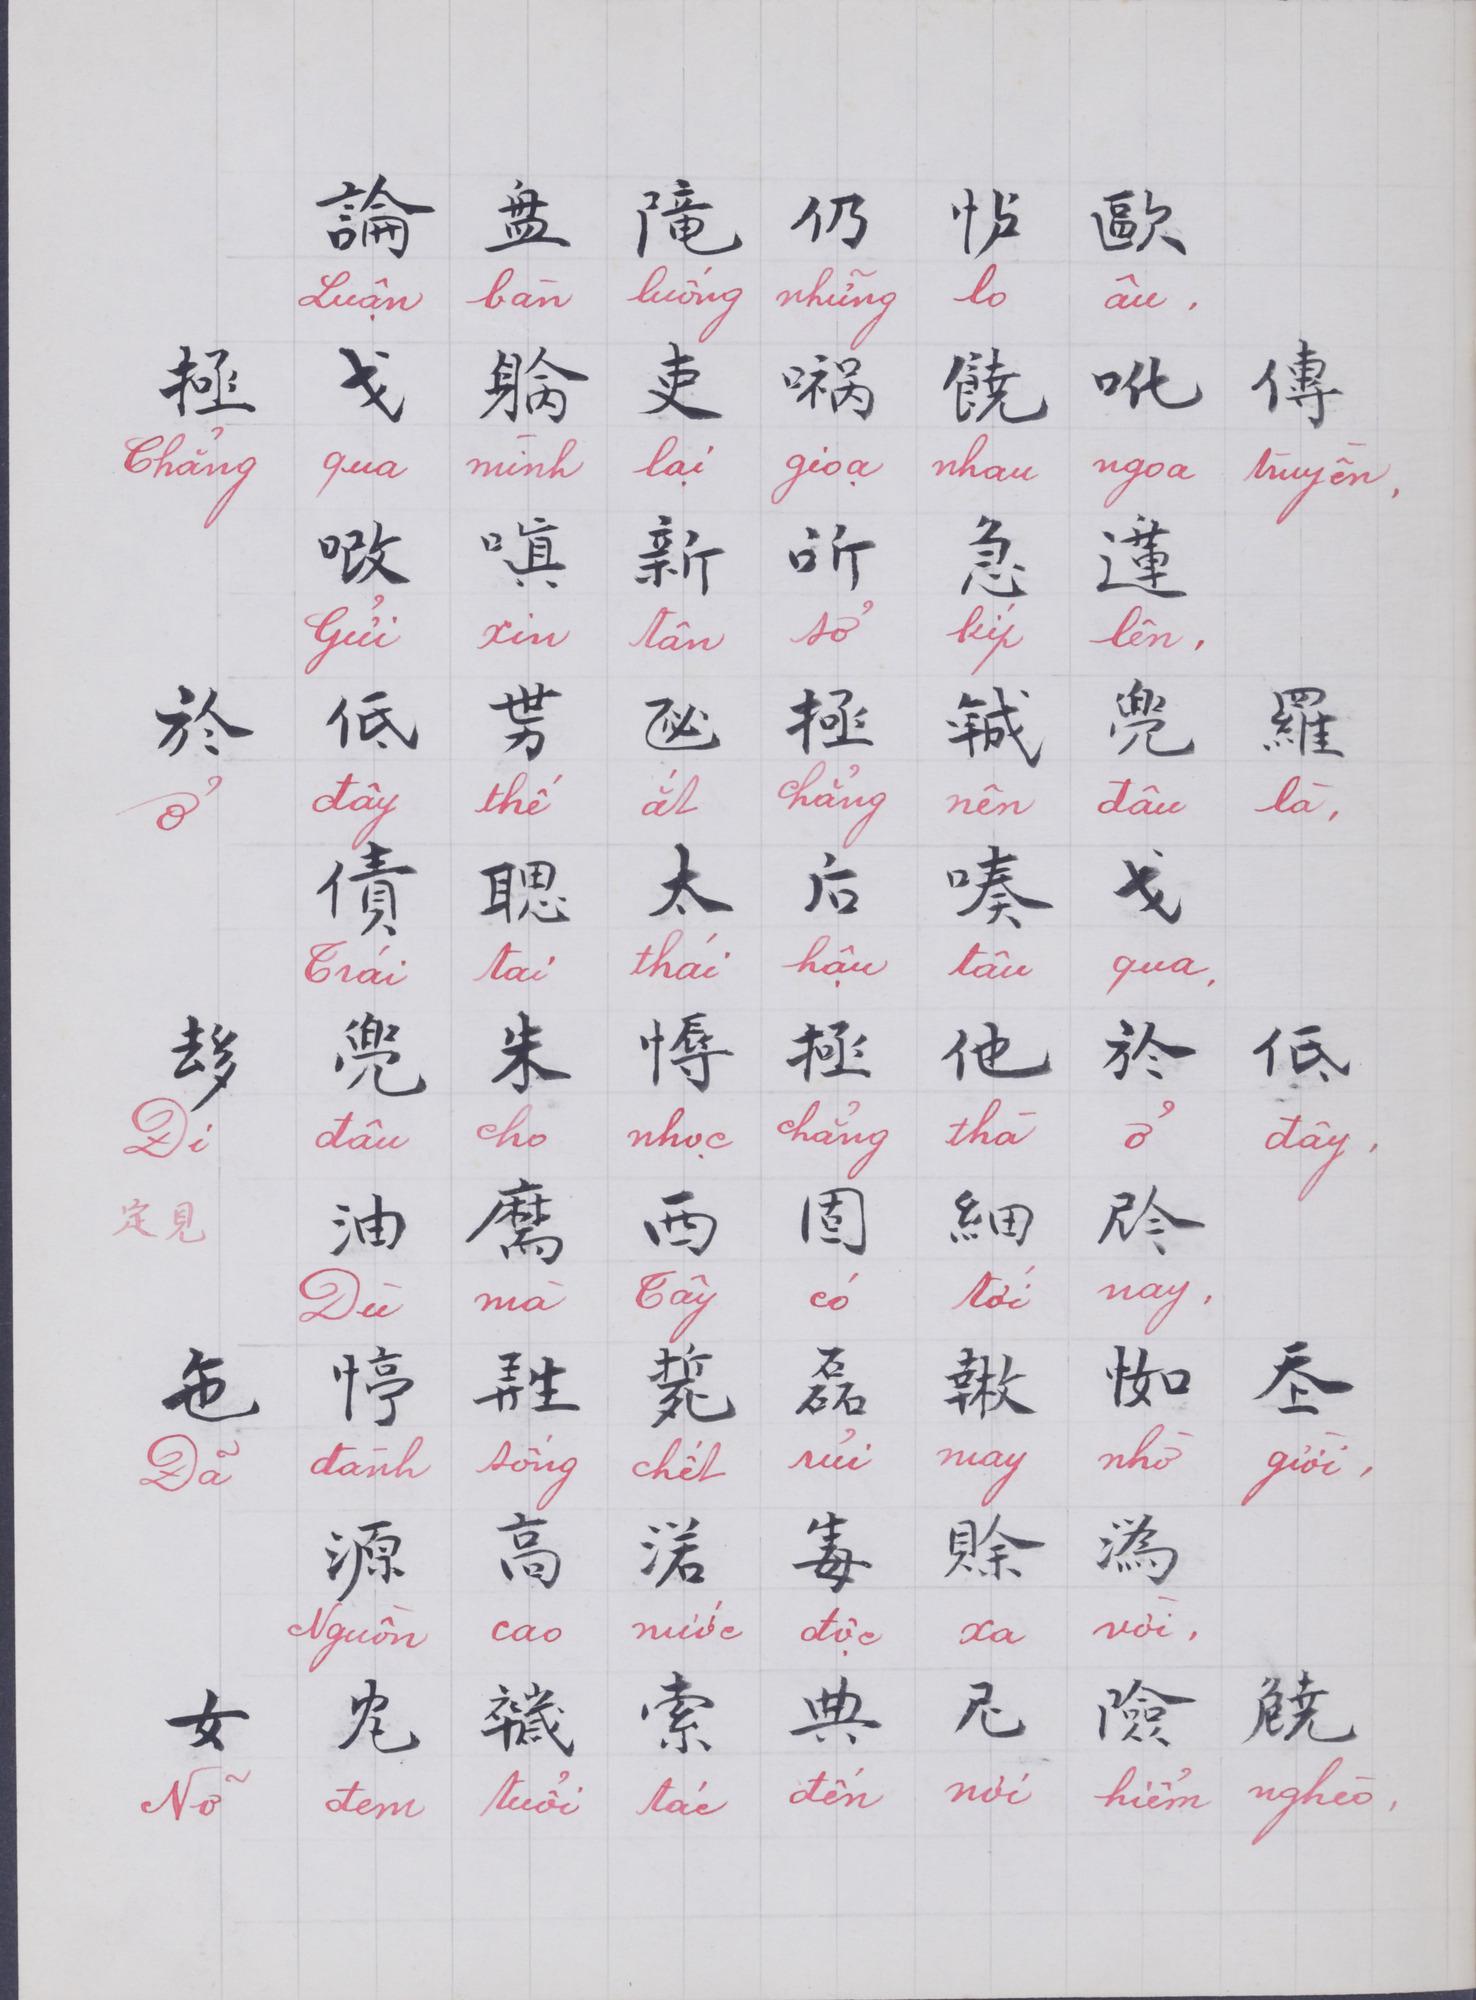 論盘隆仍怗歐
Luận bàn luống những lo âu,
極戈躺吏㗻饒吪傳
Chẳng qua mình lại gioạ nhau ngoa truyền,
嗔新所急蓮
Gửi xin tân sở kíp lên,
於低極兜羅
Ở đây thế ắt chẳng nên đâu là,
債聰太后嗪戈
Trái tai thái hậu tâu qua,
兜朱極他於低
Đi đâu cho nhọc chẳng thà ở đây,
定見
油麿西固細
Dù mà Tây có tới nay,
㐌停磊㤇
Đã đành sống chết rủi may nhờ giời,
源高渃毒賒潙
Nguồn cao nước độc xa vời,
女索典尼險
Nỡ đem tuổi tác đến nơi hiểm nghèo,